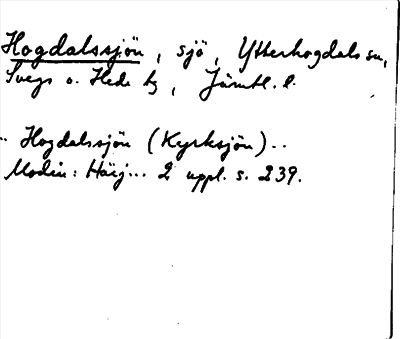 Hogdalssjön, sjö, Ytterhogdals sn,
Svegs o. Hede tg, Jämtl. l.
.. Hogdalssjön (Kyrksjön)..
Modin: Härj... 2 uppl. s. 239.